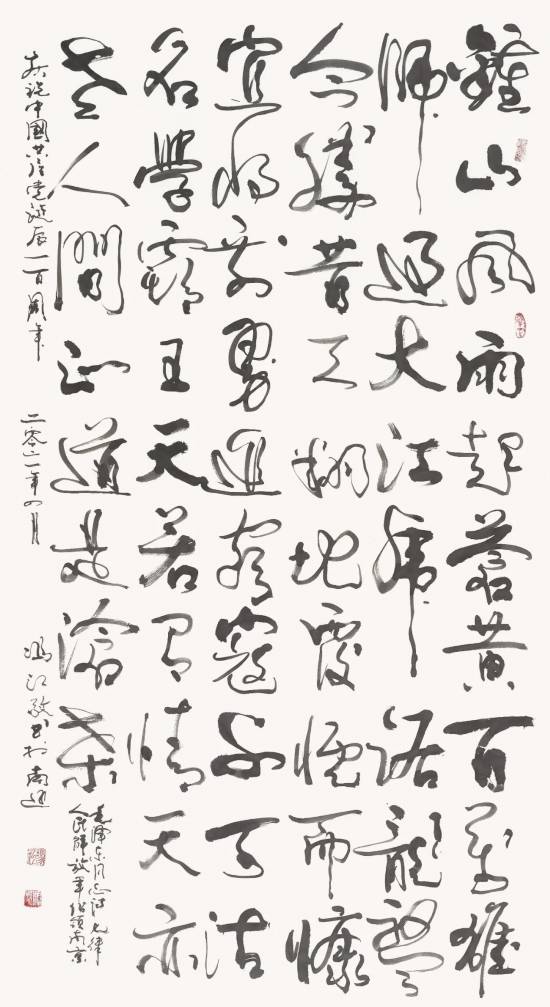 鍾山風雨起蒼黄百萬雄
師過大江虎踞龍盤
今勝昔天翻地覆慨而慷
宜將剩勇追窮寇不可沽
名學霸王天若有情天亦
老人間正道是滄桑
毛澤東同志詩七律
人民解放軍佔領南京
祝中國共産党誕辰一百周年 二零二一年四月 鴻江敬书於南通